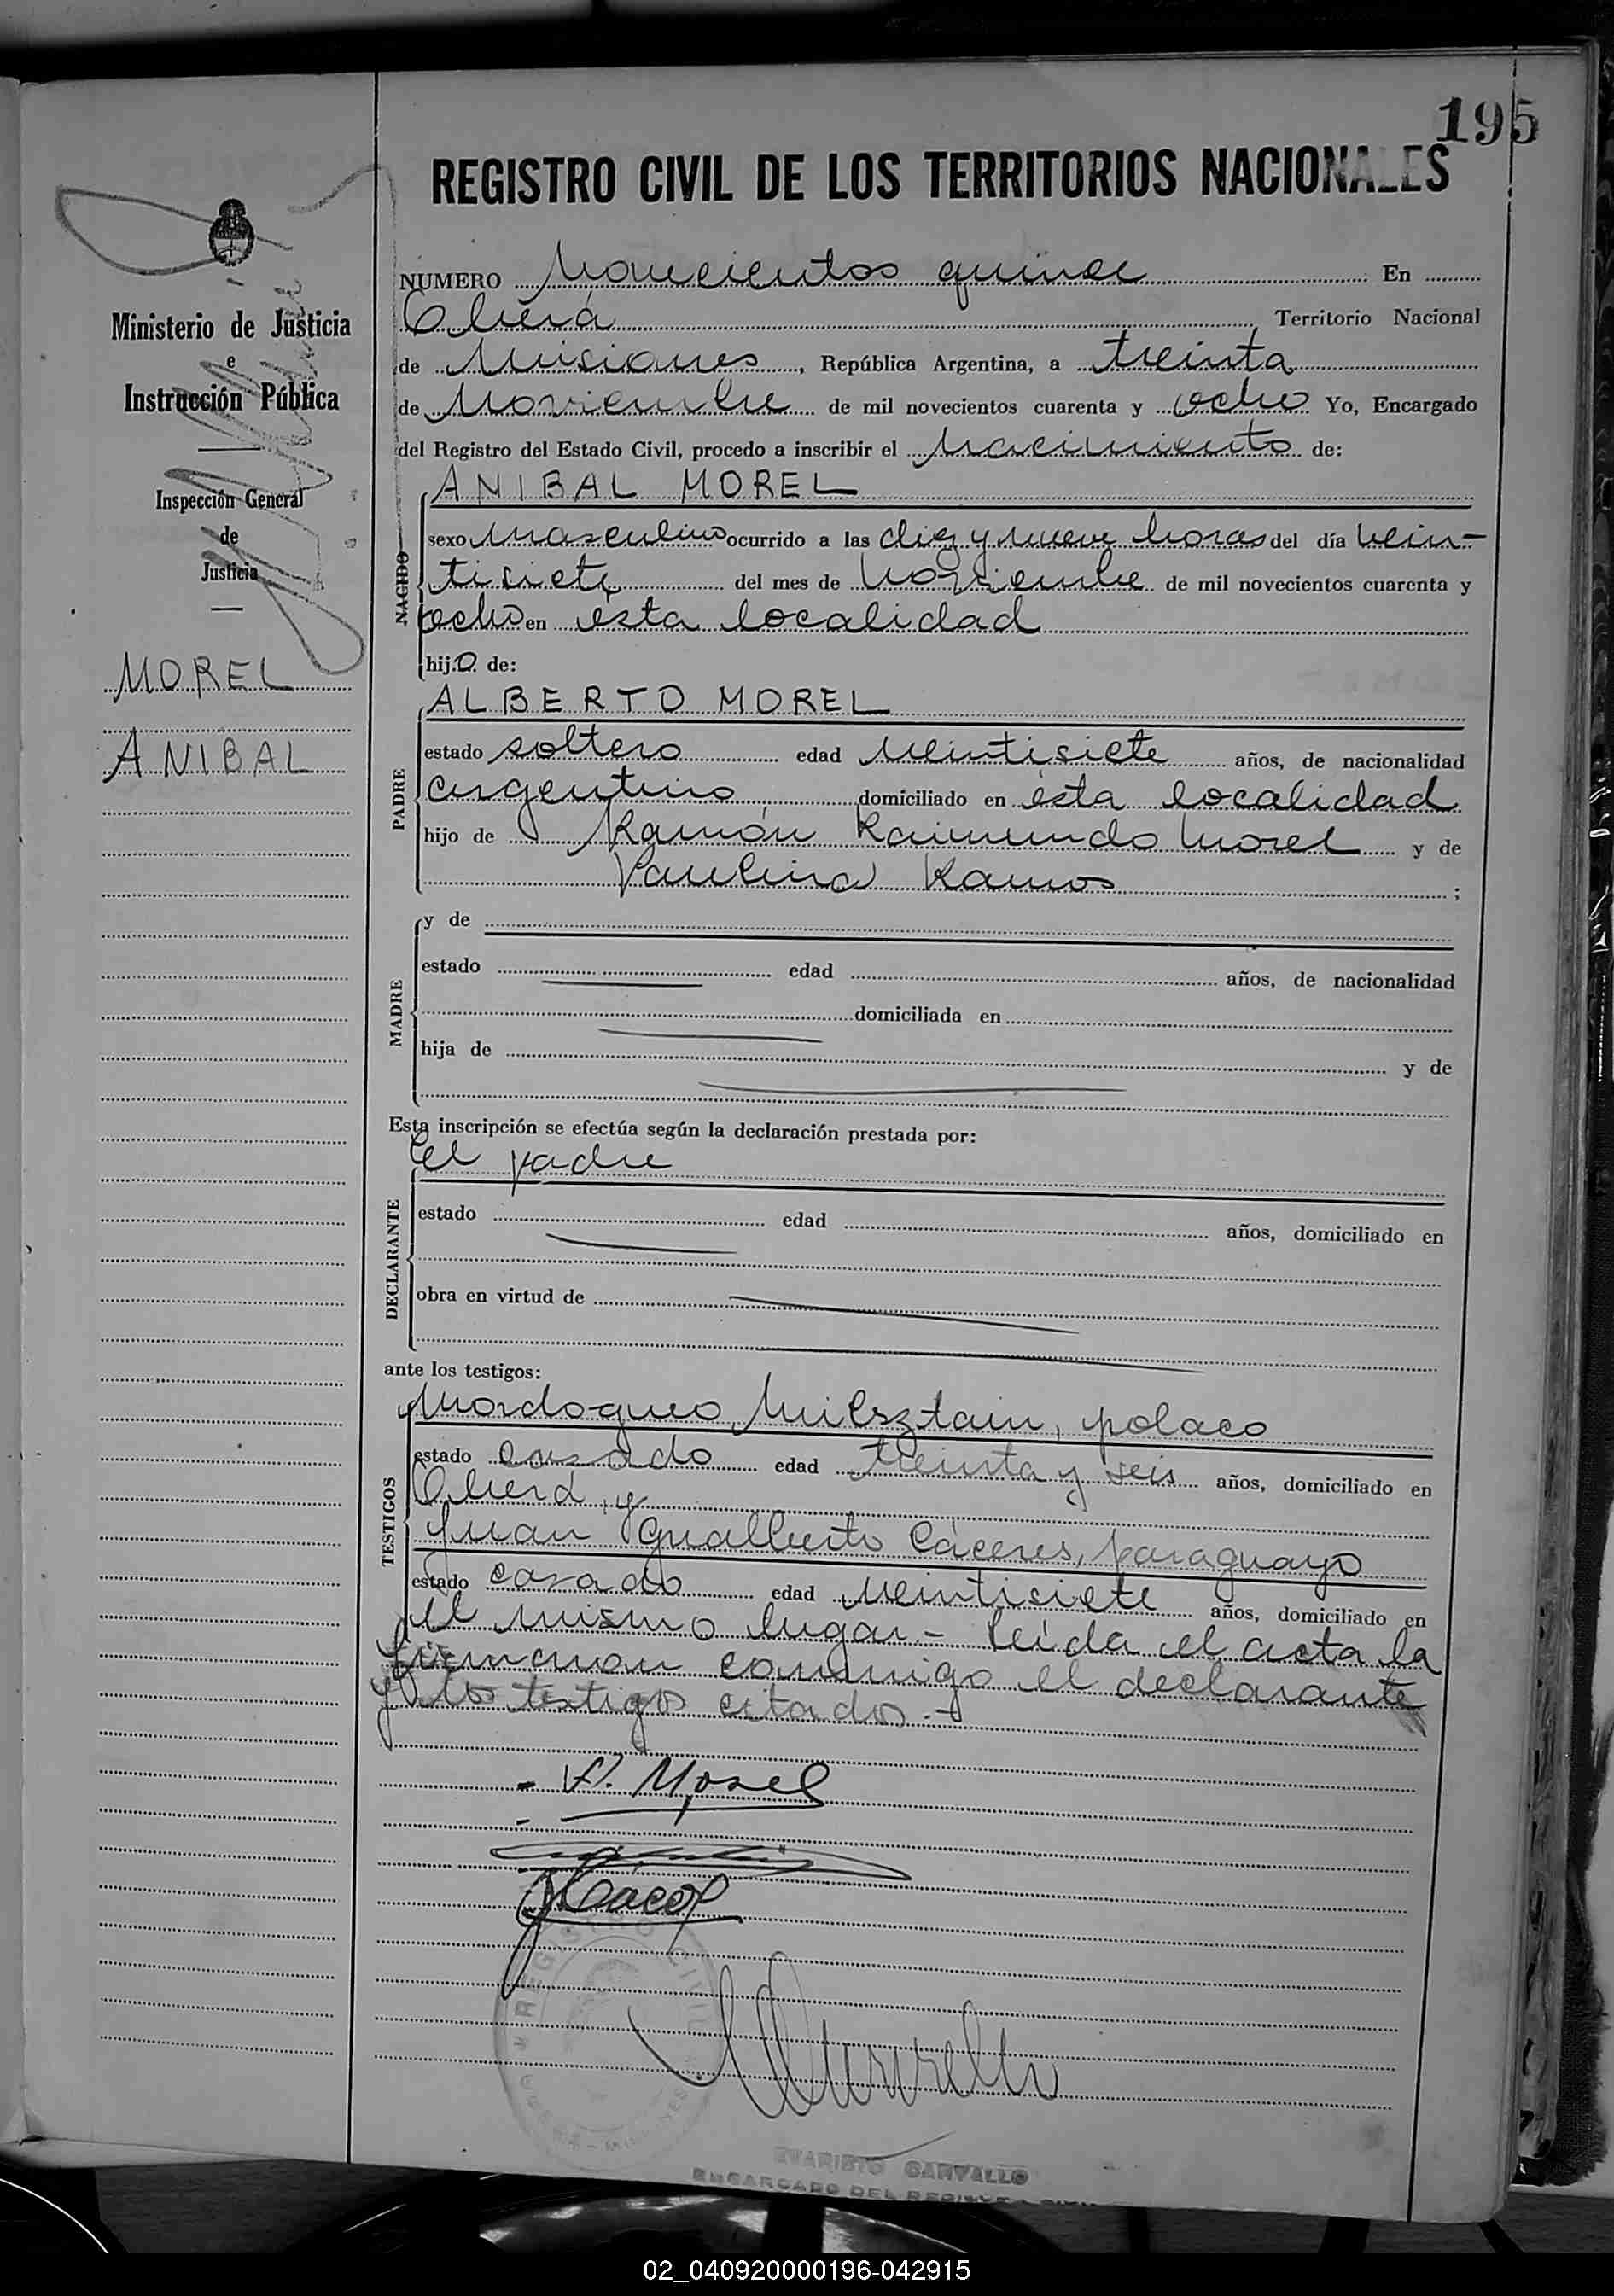 195
REGISTRO CIVIL DE LOS TERRITORIOS NACIONALES
Ministerio de Justicia
e
Instrucción Pública
Inspección General
de
Justicia
MOREL
ANIBAL
NUMERO Novecientos quince En
Oberá Territorio Nacional
de Misiones, República Argentina, a treinta
de Noviembre de mil novecientos cuarenta y ocho Yo, Encargado
del Registro del Estado Civil, procedo a inscribir el Nacimiento de:
NACIDO
ANIBAL MOREL
sexo masculino ocurrido a las diez y nueve horas del día vein-
tisiete del mes de Noviembre de mil novecientos cuarenta y
ocho en ésta localidad
hijo de:
PADRE
ALBERTO MOREL
estado soltero edad veintisiete años, de nacionalidad
argentino domiciliado en ésta localidad
hijo de Ramón Raimundo Morel y de
Paulina Ramos ;
MADRE
y de
estado edad años, de nacionalidad
domiciliada en
hija de y de
Esta inscripción se efectúa según la declaración prestada por:
DECLARANTE
el padre
estado edad años, domiciliado en
obra en virtud de
ante los testigos:
TESTIGOS
Mordoqueo Milsztain, polaco
estado casado edad treinta y seis años, domiciliado en
Oberá, y
Juan Gualberto Cáceres, paraguayo
estado casado edad veintisiete años, domiciliado en
el mismo lugar.- Leída el acta la
firmaron conmigo el declarante
y los testigos citados.-
A. Morel
REGISTRO CIVIL
EVARISTO CARVALLO
ENCARGADO DEL REGISTRO CIVIL
02_040920000196-042915